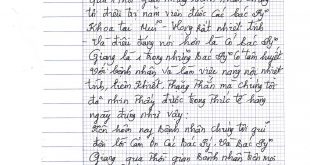 tô điều trị nằm viện được các bác sỹ
Khoa tai Mũi - Họng rất nhiệt tình
Và điều trị nơi hơn là có bác sỹ
Giang là 1 trong những Bác sỹ có tâm huyết
Với bệnh nhân và làm việc nặng nổ, nhiệt
tình, kiên nhiết. thẳng thắn mà chúng tôi
đã nhìn thấy được trong thực tế hàng
ngày đúng như vậy
Nên hôm nay Bệnh nhân chúng tôi gửi
đến lời Cảm ơn các Bác sỹ và Bác sỹ
Giang qua thời gian Bệnh nhân trên mọi